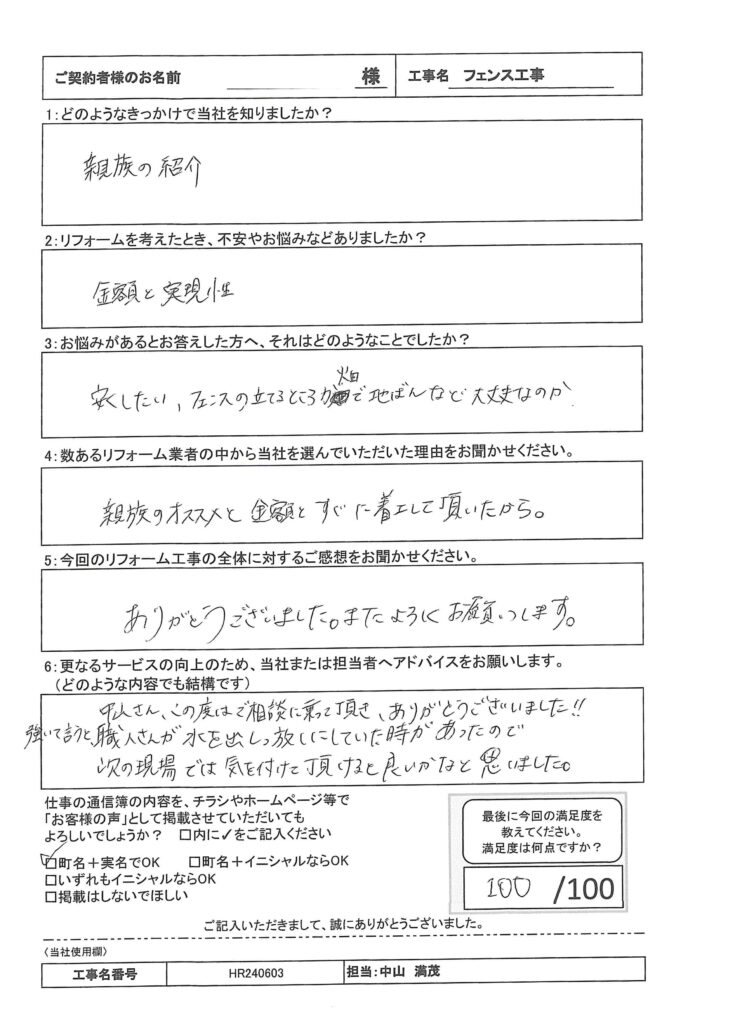 ご契約者様のお名前 様 工事名 フェンス工事
1:どのようなきっかけで当社を知りましたか?
親族の紹介
2:リフォームを考えたとき、不安やお悩みなどありましたか?
金額と実現性
3:お悩みがあるとお答えした方へ、それはどのようなことでしたか?
安くしたい、フェンスの立てるところが畑で地ばんなど大丈夫なのか
4:数あるリフォーム業者の中から当社を選んでいただいた理由をお聞かせください。
親族のオススメと金額とすぐに着工して頂いたから。
5:今回のリフォーム工事の全体に対するご感想をお聞かせください。
ありがとうございました。またよろしくお願いします。
6:更なるサービスの向上のため、当社または担当者へアドバイスをお願いします。
(どのような内容でも結構です)
中山さん、この度はご相談に乗って頂き、ありがとうございました!!
強いて言うと、職人さんが水を出しっ放しにしていた時があったので
次の現場では気を付けて頂けると良いかなと思いました。
仕事の通信簿の内容を、チラシやホームページ等で
「お客様の声」として掲載させていただいても
よろしいでしょうか? □内に✓をご記入ください
☑町名+実名でOK □町名+イニシャルならOK
□いずれもイニシャルならOK
□掲載はしないでほしい
最後に今回の満足度を
教えてください。
満足度は何点ですか?
100 /100
ご記入いただきまして、誠にありがとうございました。
〈当社使用欄〉
工事名番号 HR240603 担当:中山 満茂